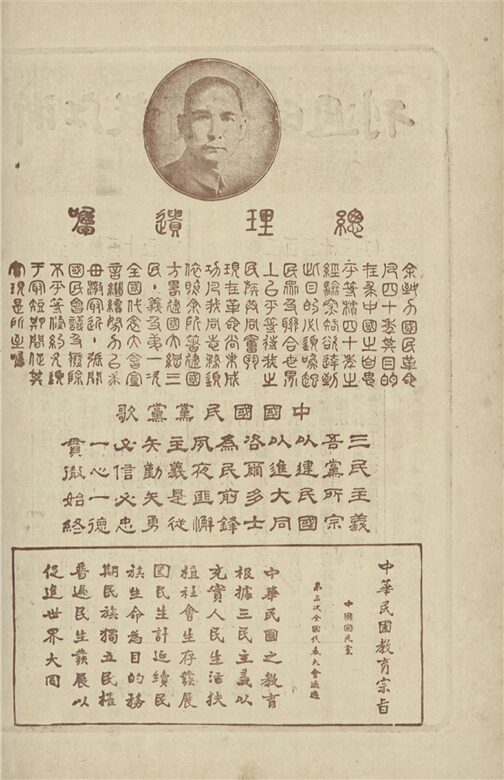 總理遺囑
余致力國民革命
凡四十年其目的
在求中國之自由
平等積四十年之
經驗深知欲達到
此目的必須喚起
民眾及聯合世界
上以平等待我之
民族共同奮鬥
現在革命尚未成
功凡我同志務須
依照余所著建國
方略建國大綱三
民主義及第一次
全國代表大會宣
言繼續努力以求
貫徹最近主張開
國民會議及廢除
不平等條約尤須
于最短期間促其
實現是所至囑
中國國民黨黨歌
三民主義
吾黨所宗
以建民國
以進大同
咨爾多士
為民前鋒
夙夜匪懈
主義是從
矢勤矢勇
必信必忠
一心一德
貫徹始終
中華民國教育宗旨
中國國民黨
第三次全國代表大會通過
中華民國之教育
根據三民主義以
充實人民生活扶
植社會生存發展
國民生計延續民
族生命為目的務
期民族獨立民權
普遍民生發展以
促進世界大同